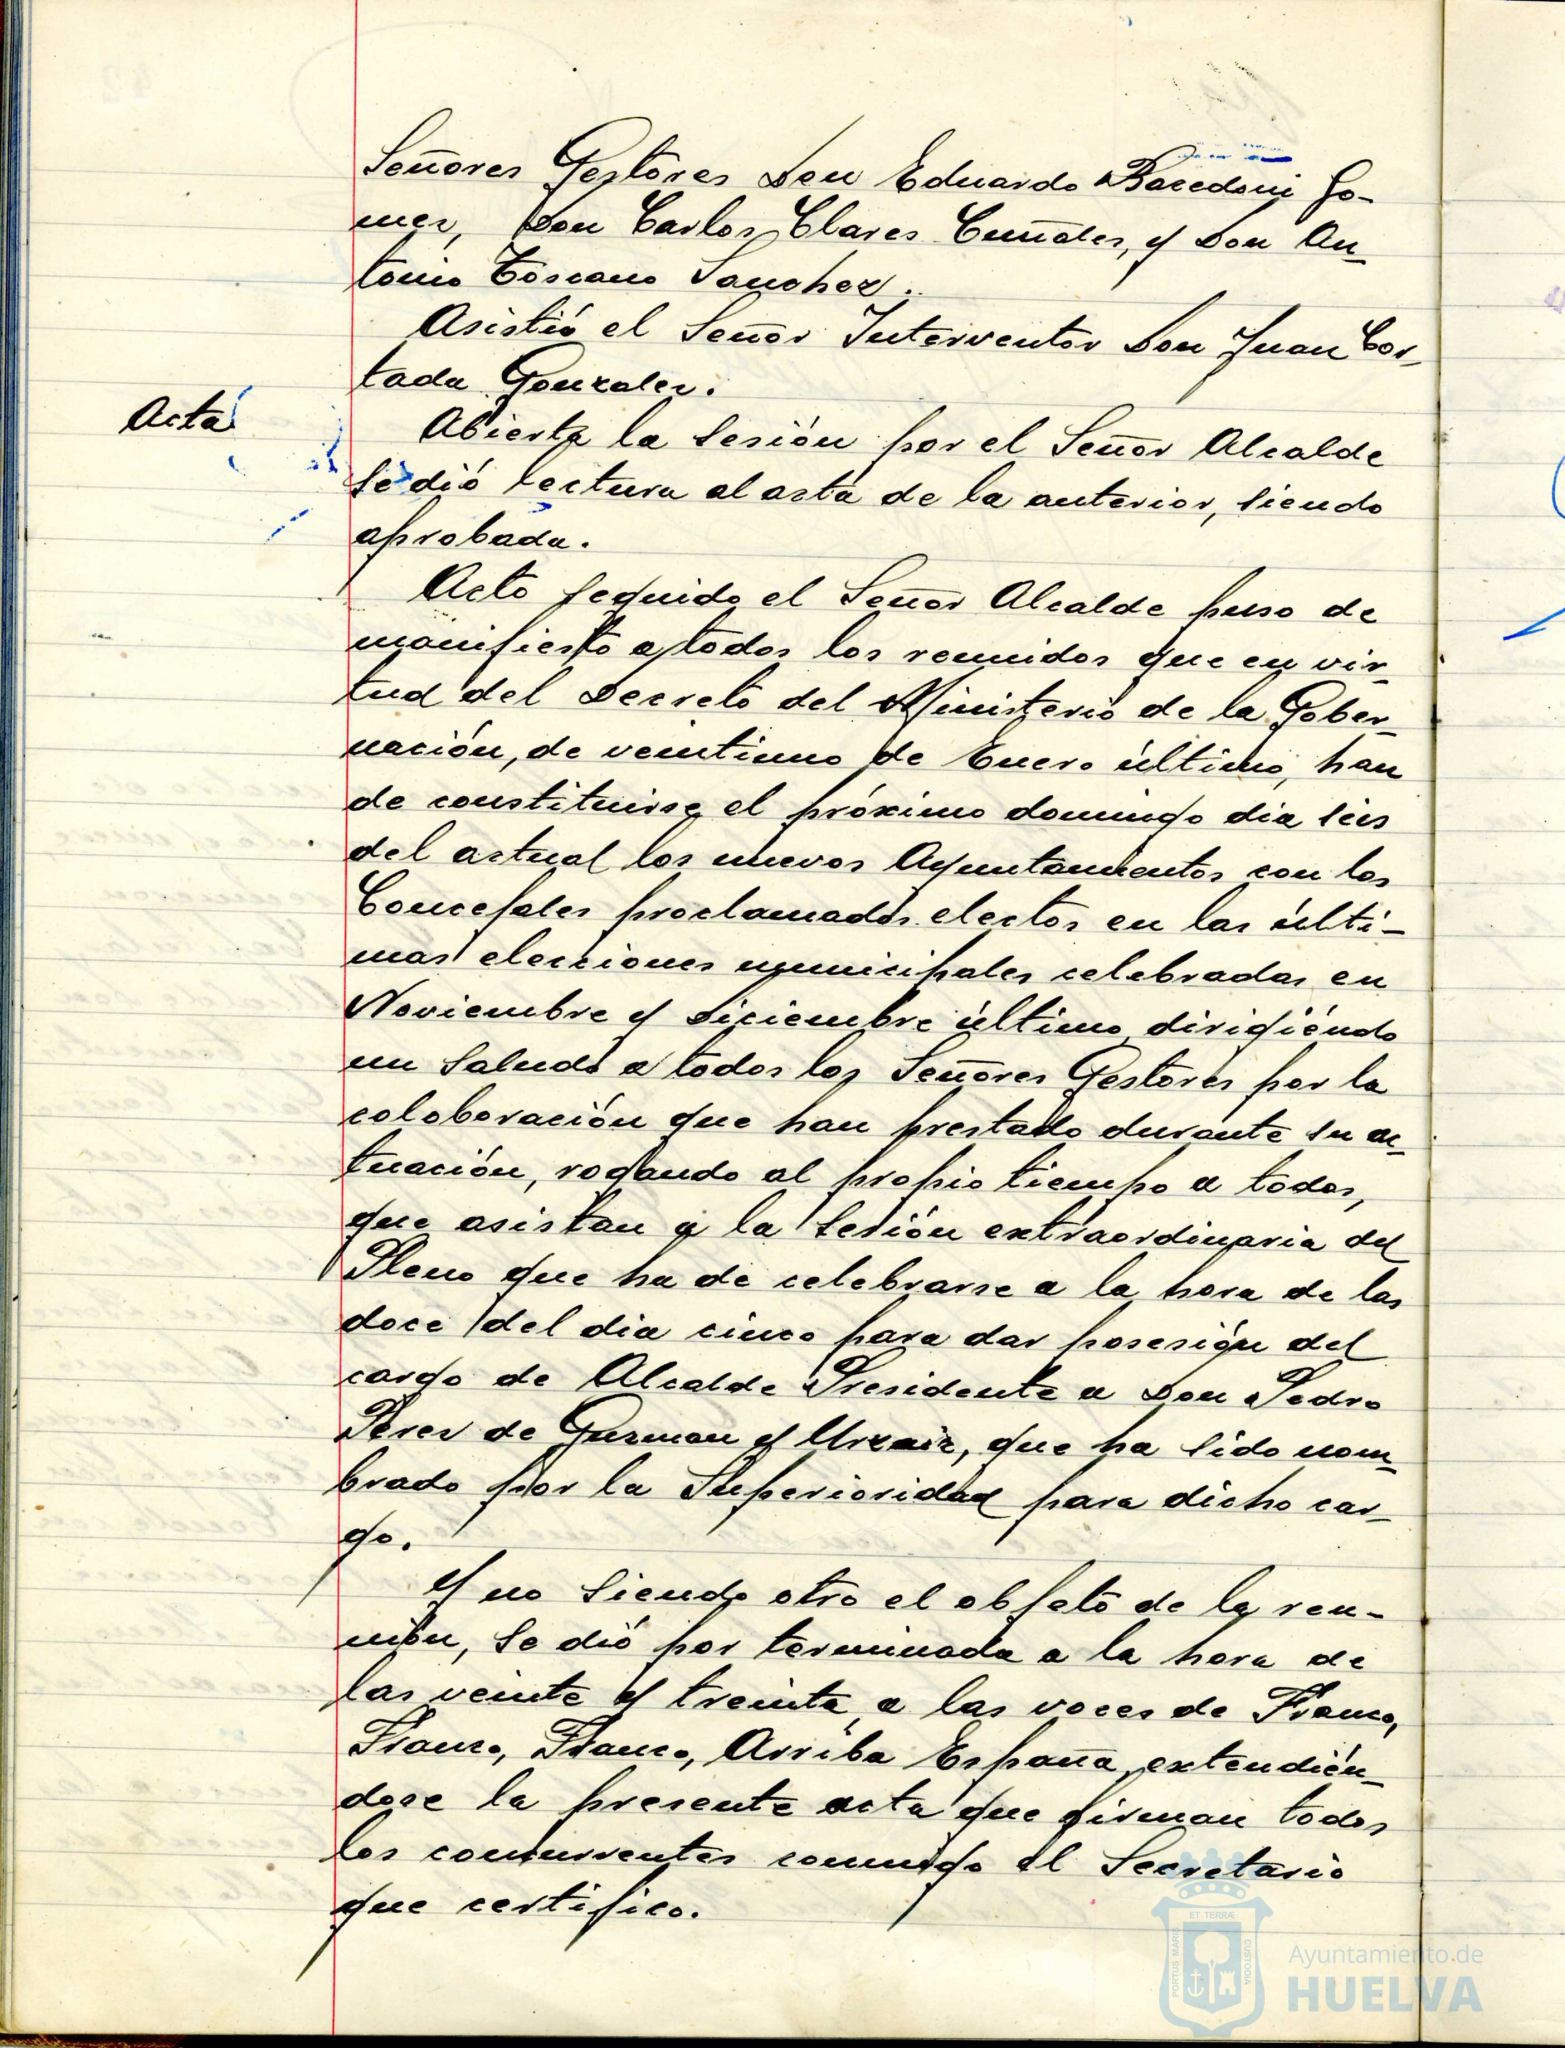 Señores Gestores Don Eduardo Bacedoni Go-
mez, Don Carlos Clares Cumales, y Don An-
tonio Toscano Sanchez.
Asistió el Señor Interventor Don Juan Cor-
tada Gonzalez.
Acta
Abierta la sesión por el Señor Alcalde
se dió lectura al acta de la anterior, siendo
aprobada.
Acto seguido el Señor Alcalde puso de
manifiesto a todos los reunidos que en vir-
tud del Decreto del Ministerio de la Gober-
nación, de veintiuno de Enero último, han
de constituirse el próximo domingo dia seis
del actual los nuevos Ayuntamientos con los
Concejales proclamados electos en las últi-
mas elecciones municipales celebradas en
Noviembre y Diciembre último dirigiéndo
un saludo a todos los Señores Gestores por la
coloboración que han prestado durante su ac-
tuación, rogando al propio tiempo a todos,
que asistan a la sesión extraordinaria del
Pleno que ha de celebrarse a la hora de las
doce del dia cinco para dar posesión del
cargo de Alcalde Presidente a Don Pedro
Perez de Guzman y Urzaiz, que ha sido nom-
brado por la Superioridad para dicho car-
go.
Y no siendo otro el objeto de la reu-
nión, se dió por terminada a la hora de
las veinte y treinta, a las voces de Franco,
Franco, Franco, Arriba España, extendién-
dose la presente acta que firman todos
los concurrentes conmigo el Secretario
que certifico.
ET TERRÆ
PORTUS MARIS
CUSTODIA
Ayuntamiento de
HUELVA